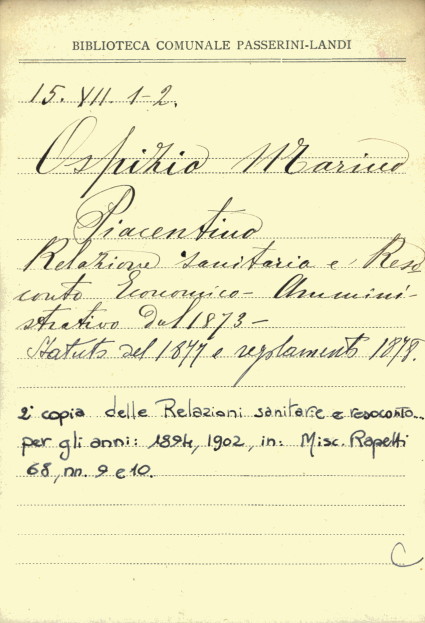 BIBLIOTECA COMUNALE PASSERINI-LANDI
15. VII. 1-2.
Ospizio Marino
Piacentino
Relazione sanitaria e Reso
conto Economico - Ammini-
strativo del 1873 -
Statuto del 1877 e regolamento 1878.
2ª copia delle Relazioni sanitarie e resoconto...
per gli anni: 1894, 1902, in: Misc. Rapetti
68, nn. 9 e 10.
C